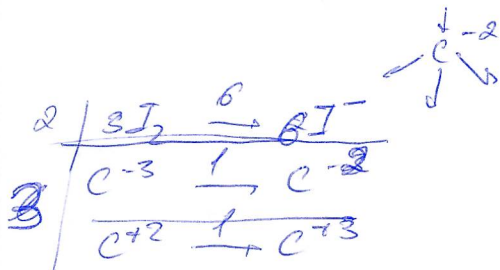 C -2
2 | 3I₂ 6→ 6I⁻
C⁻³ 1→ C⁻²
3
C⁺² 1→ C⁺³